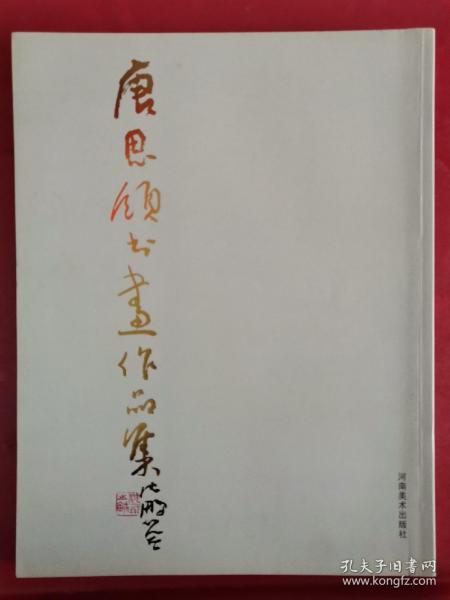 唐思书畫作品集
沈鹏
河南美术出版社
孔夫子旧书网
www.kongfz.com